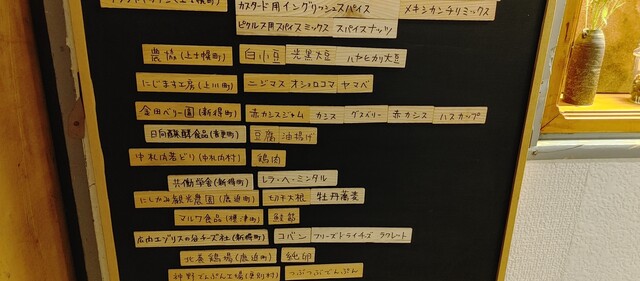 カスタード用イングリッシュスパイス メキシカンチリミックス
ピクルス用スパイスミックス スパイスナッツ
農協(上士幌町) 白小豆 光黒大豆 ハヤヒカリ大豆
にじます工房(上川町) ニジマス オショロコマ ヤマベ
金田ベリー園(新得町) 赤カシスジャム カシス グズベリー 赤カシス ハスカップ
豆腐 油揚げ
中札内若どり(中札内村) 鶏肉
共働学舎(新得町) レラ・ヘ・ミンタル
にしかみ観光農園(鹿追町) 切干大根 牡丹蕎麦
マルワ食品(標津町) 鮭節
広内エゾリスの谷チーズ社(新得町) コバン フリーズドライイチゴ ラクレート
北英鶏場(鹿追町) 純卵
神野でんぷん工場(更別村) つぶつぶでんぷん